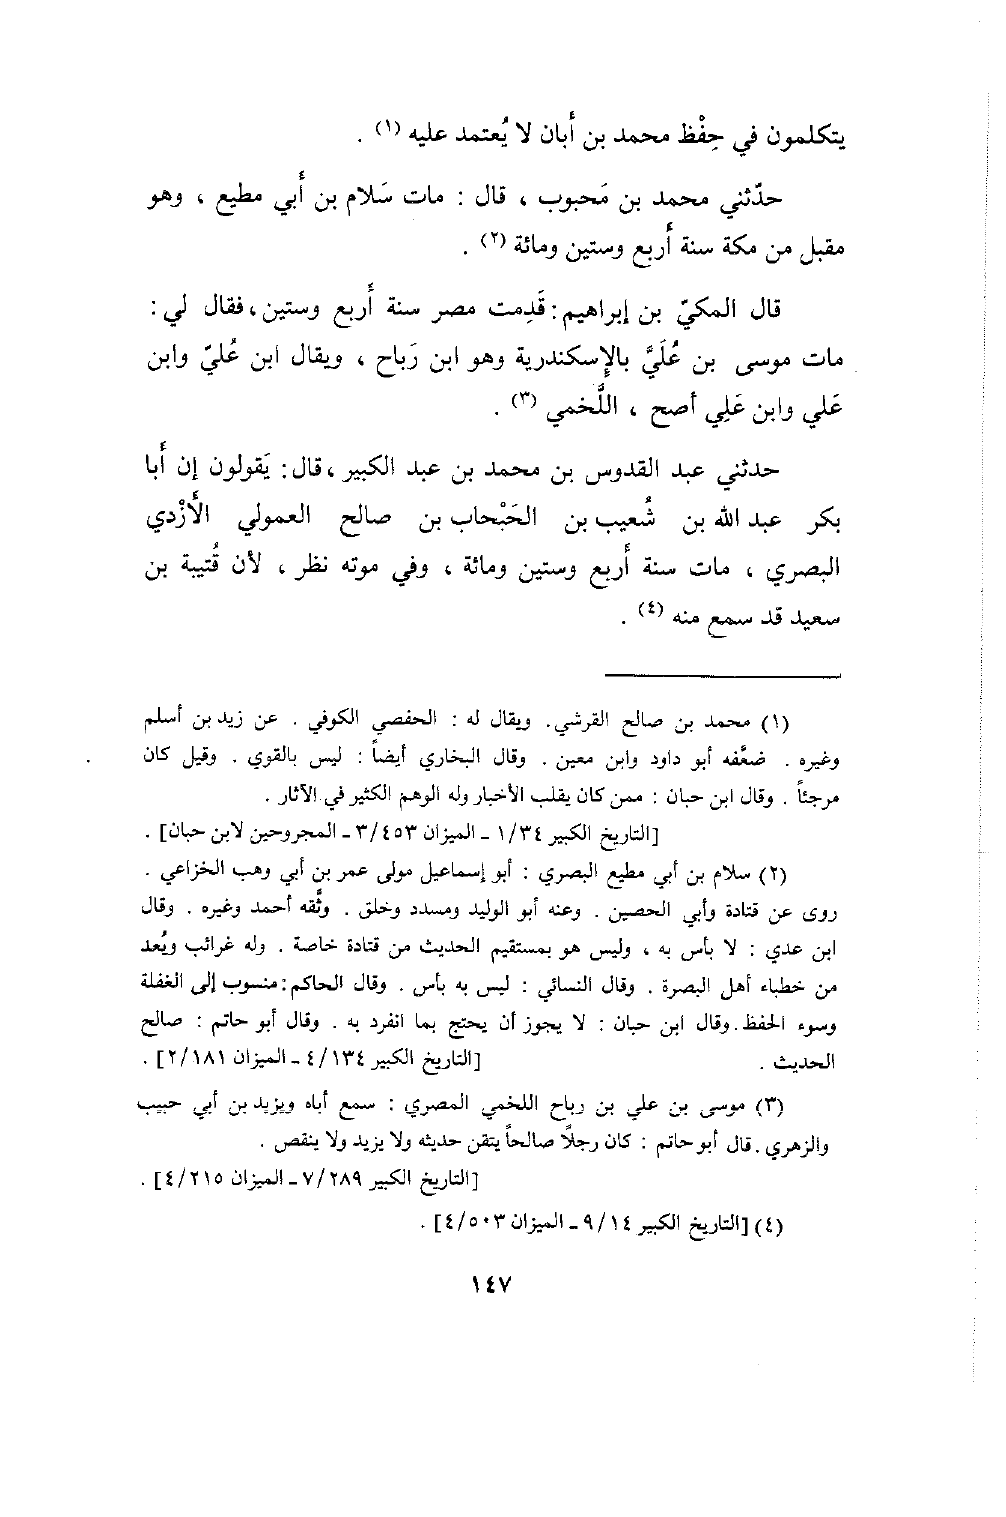 يتكلمون في حِفْظ محمد بن أَبان لا يُعتمد عليه (١) .
حدّثني محمد بن مَحبوب ، قال : مات سَلام بن أَبي مطيع ، وهو
مقبل من مكة سنة أَربع وستين ومائة (٢) .
قال المكيّ بن إبراهيم : قَدِمت مصر سنة أَربع وستين ، فقال لي :
مات موسى بن عُلَيَّ بالإِسكندرية وهو ابن رَباح ، ويقال ابن عُليّ وابن
عَلي وابن عَلِي أصح ، اللَّخمي (٣) .
حدثني عبد القدوس بن محمد بن عبد الكبير ، قال : يَقولون إن أَبا
بكر عبد الله بن شُعيب بن الحَبْحاب بن صالح العمولي الأَزْدي
البصري ، مات سنة أَربع وستين ومائة ، وفي موته نظر ، لأن قُتيبة بن
سعيد قد سمع منه (٤) .
(١) محمد بن صالح القرشي. ويقال له : الحفصي الكوفي . عن زيد بن أسلم
وغيره . ضعَّفه أبو داود وابن معين . وقال البخاري أيضاً : ليس بالقوي . وقيل كان
مرجئاً . وقال ابن حبان : ممن كان يقلب الأخبار وله الوهم الكثير في الآثار .
[التاريخ الكبير ١/٣٤ ـ الميزان ٣/٤٥٣ ـ المجروحين لابن حبان] .
(٢) سلام بن أبي مطيع البصري : أبو إسماعيل مولى عمر بن أبي وهب الخزاعي .
روى عن قتادة وأبي الحصين . وعنه أبو الوليد ومسدد وخلق . وثَّقه أحمد وغيره . وقال
ابن عدي : لا بأس به ، وليس هو بمستقيم الحديث من قتادة خاصة . وله غرائب ويُعد
من خطباء أهل البصرة . وقال النسائي : ليس به بأس . وقال الحاكم : منسوب إلى الغفلة
وسوء الحفظ . وقال ابن حبان : لا يجوز أن يحتج بما انفرد به . وقال أبو حاتم : صالح
الحديث . [التاريخ الكبير ٤/١٣٤ ـ الميزان ٢/١٨١] .
(٣) موسى بن علي بن رباح اللخمي المصري : سمع أباه ويزيد بن أبي حبيب
والزهري . قال أبو حاتم : كان رجلاً صالحاً يتقن حديثه ولا يزيد ولا ينقص .
[التاريخ الكبير ٧/٢٨٩ ـ الميزان ٤/٢١٥] .
(٤) [التاريخ الكبير ٩/١٤ ـ الميزان ٤/٥٠٣] .
١٤٧